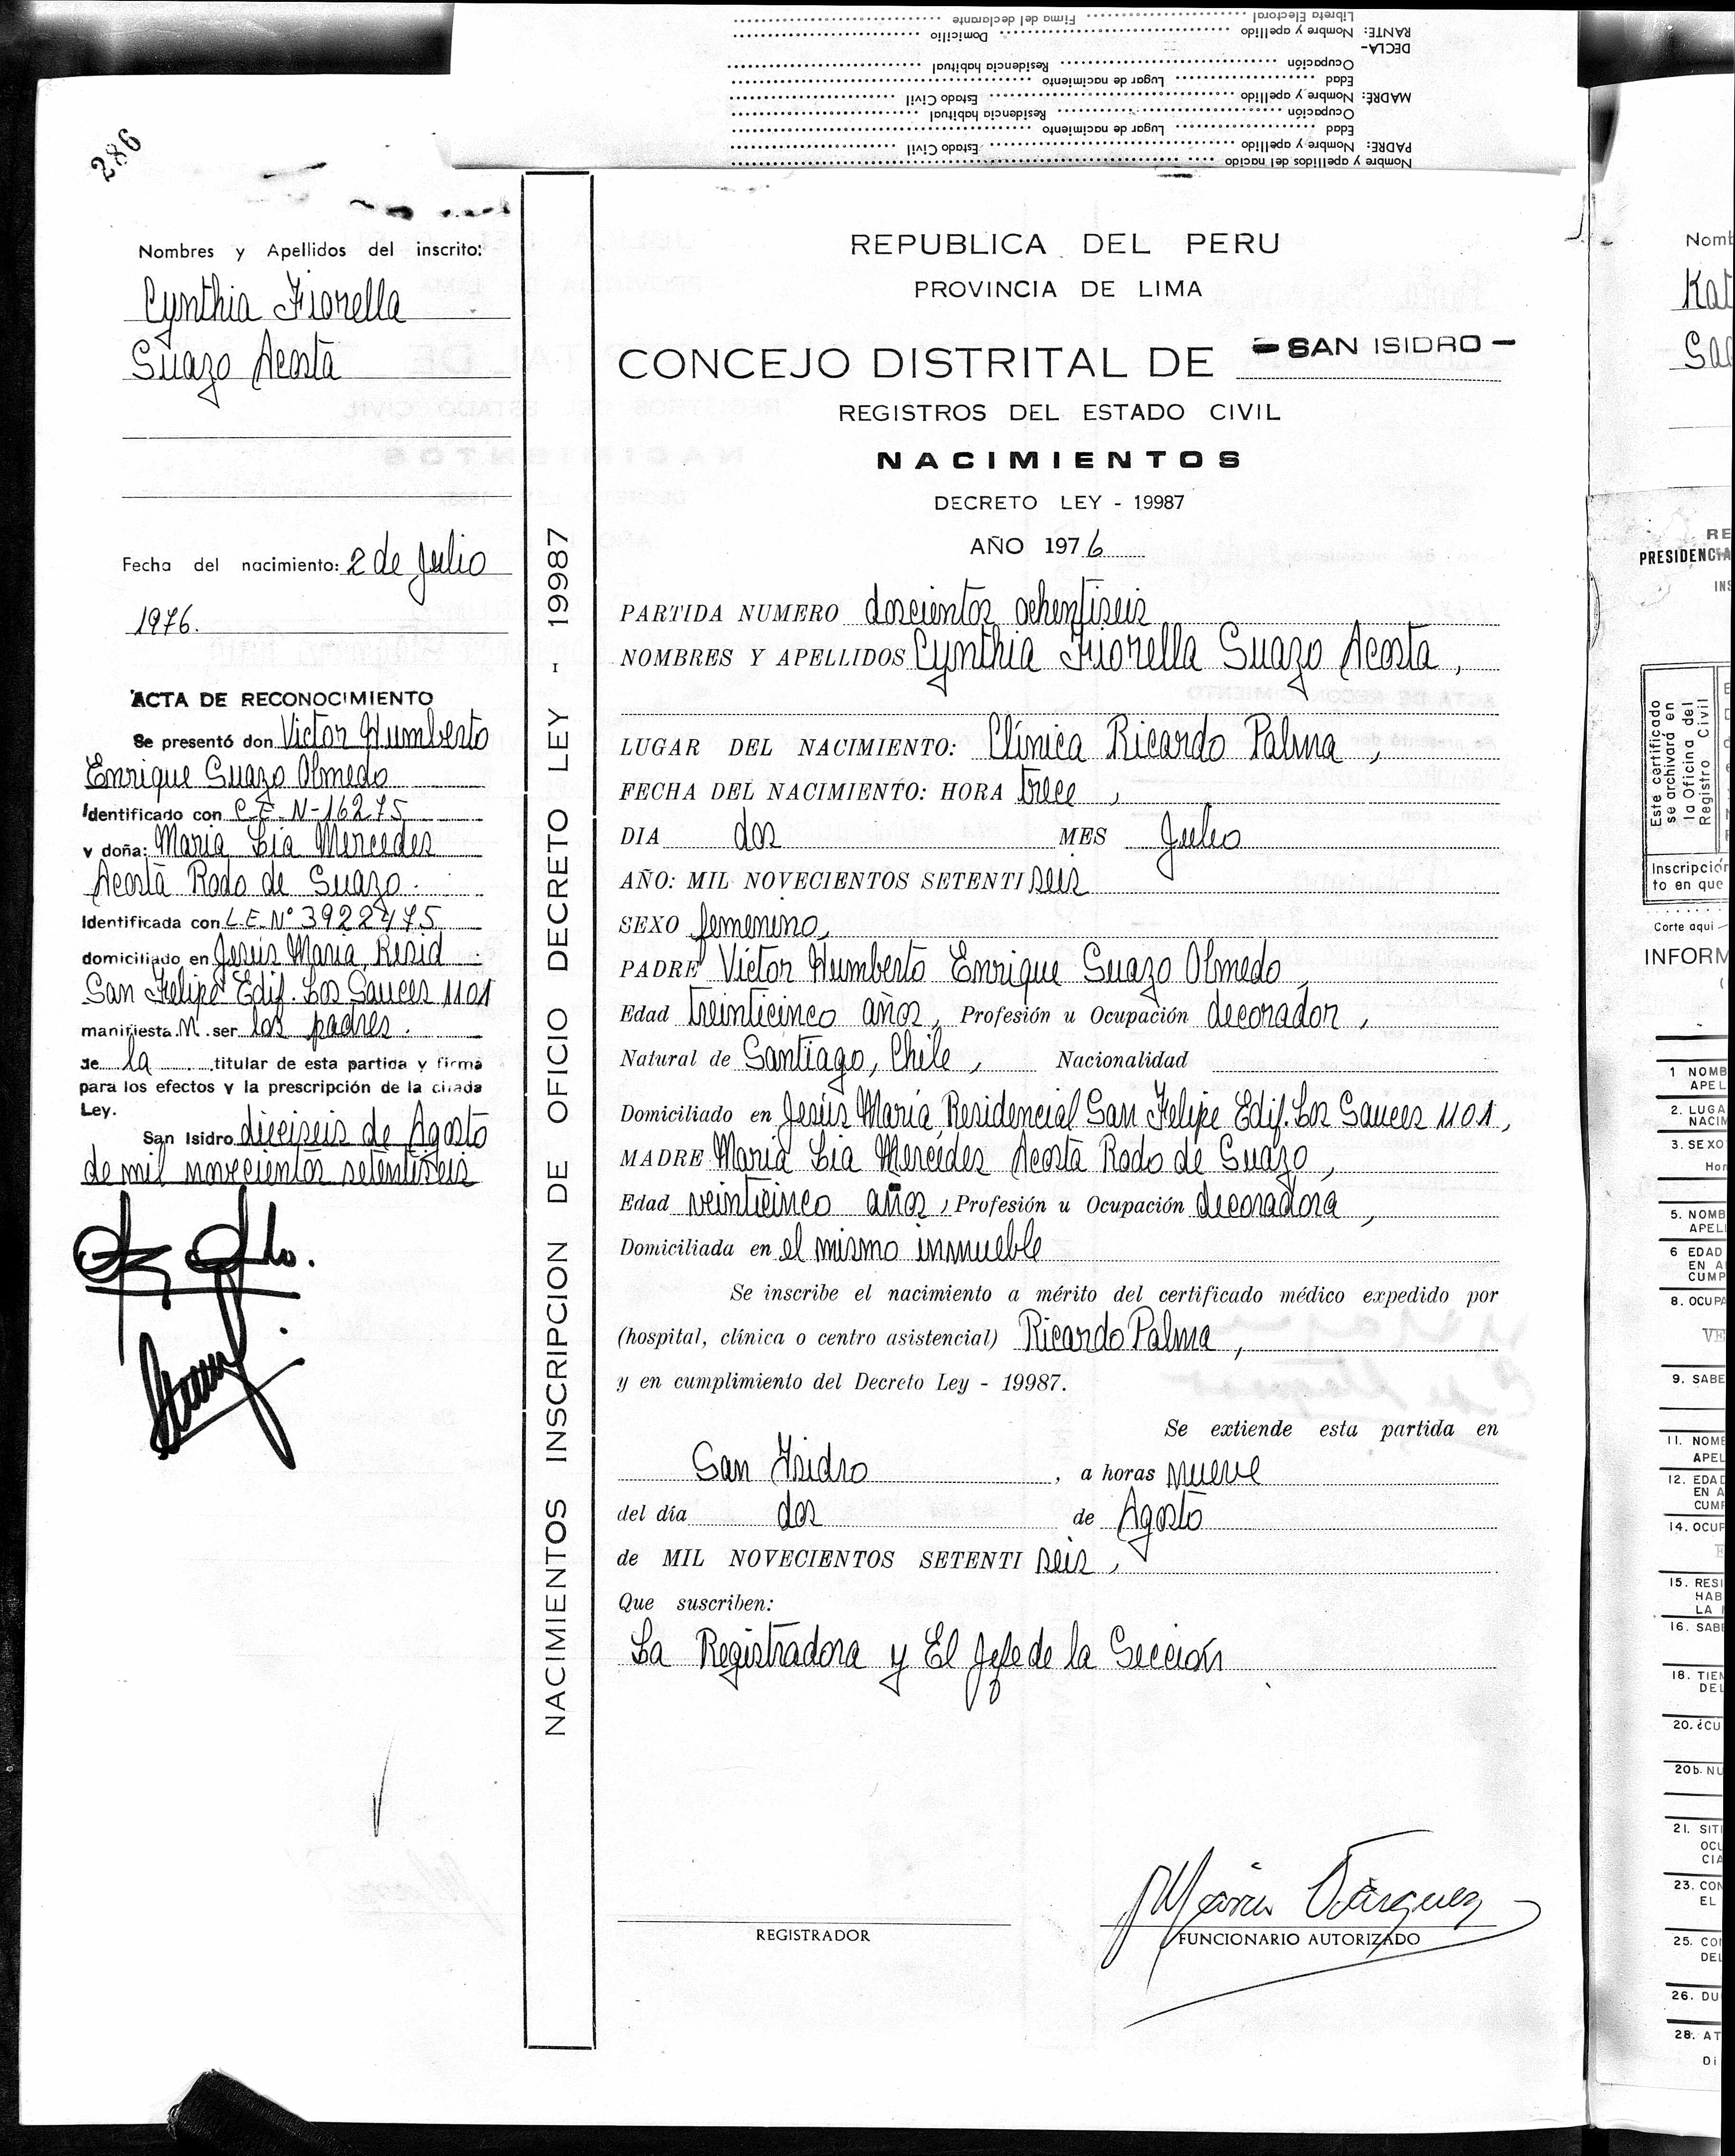 Libreta Electoral Firma del declarante
RANTE: Nombre y apellido Domicilio
DECLA-
Ocupación Residencia habitual
Edad Lugar de nacimiento
MADRE: Nombre y apellido Estado Civil
Ocupación Residencia habitual
Edad Lugar de nacimiento
PADRE: Nombre y apellido Estado Civil
Nombre y apellidos del nacido
286
Nombres y Apellidos del inscrito:
Cynthia Fiorella
Suazo Acosta
Fecha del nacimiento: 2 de Julio
1976.
ACTA DE RECONOCIMIENTO
Se presentó don Victor Humberto
Enrique Suazo Olmedo
Identificado con C.E. N-16275
y doña: Maria Lia Mercedes
Acosta Rodo de Suazo.
Identificada con L.E. Nº 3922475
domiciliado en Jesús María Resid
San Felipe Edif. Los Sauces 1101
manifiesta.n. ser los padres.
de la titular de esta partida y firma
para los efectos y la prescripción de la citada
Ley.
San Isidro dieciseis de Agosto
de mil novecientos setentiseis
NACIMIENTOS INSCRIPCION DE OFICIO DECRETO LEY - 19987
REPUBLICA DEL PERU
PROVINCIA DE LIMA
CONCEJO DISTRITAL DE - SAN ISIDRO -
REGISTROS DEL ESTADO CIVIL
NACIMIENTOS
DECRETO LEY - 19987
AÑO 1976
PARTIDA NUMERO doscientos ochentiseis
NOMBRES Y APELLIDOS Cynthia Fiorella Suazo Acosta,
LUGAR DEL NACIMIENTO: Clínica Ricardo Palma,
FECHA DEL NACIMIENTO: HORA trece,
DIA dos MES Julio
AÑO: MIL NOVECIENTOS SETENTI seis
SEXO femenino,
PADRE Victor Humberto Enrique Suazo Olmedo,
Edad treinticinco años, Profesión u Ocupación decorador,
Natural de Santiago, Chile, Nacionalidad
Domiciliado en Jesús María, Residencial San Felipe Edif. Los Sauces 1101,
MADRE Maria Lia Mercedes Acosta Rodo de Suazo,
Edad veinticinco años, Profesión u Ocupación decoradora,
Domiciliada en el mismo inmueble
Se inscribe el nacimiento a mérito del certificado médico expedido por
(hospital, clínica o centro asistencial) Ricardo Palma,
y en cumplimiento del Decreto Ley - 19987.
Se extiende esta partida en
San Isidro, a horas nueve
del día dos de Agosto
de MIL NOVECIENTOS SETENTI seis,
Que suscriben:
La Registradora y El Jefe de la Sección
REGISTRADOR
FUNCIONARIO AUTORIZADO
Este certificado
se archivará en
la Oficina del
Registro Civil
Corte aquí